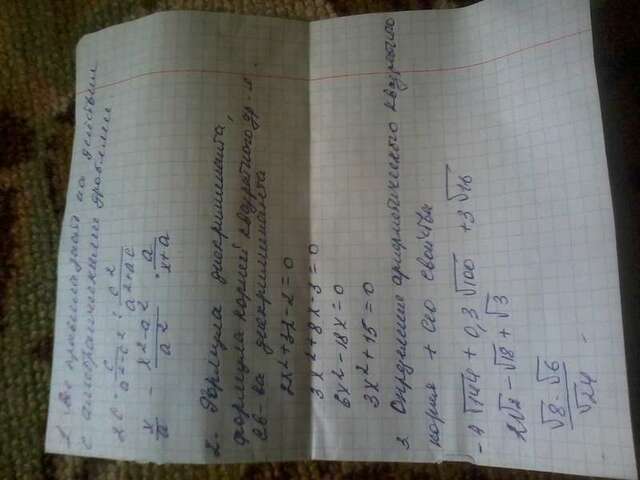 1. Все правила работ по действиям
с алгебраическими дробями
2c - c / a²-c² : c² / a²+ac
x/a - x²-a² / a² · a / x+a
2. Формула дискриминанта,
формула корней квадратного ур-я.
Св-ва дискриминанта
2x²+3x-2=0
3x²+8x-3=0
6x²-18x=0
3x²+15=0
3. Определение арифметического квадратного
корня + его свойства
-4√144 + 0,3√100 + 3√16
2√2 - √18 + √3
√8 - √6 / √24